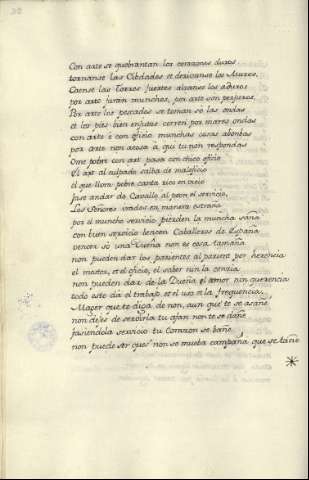 Con arte se quebrantan los corazones duros
tornanse las Cibdades et derivanse los Muros,
Caense las Torres fuertes alzanse los aduros
por arte juran munchos, por arte son perjuros.
Por arte los pescados se toman só las ondas
et los pies bien enjutos corren por mares ondas
con arte é con oficio munchas cosas abondas
por arte non acosa á qui tu non respondas
Ome pobre con art pasa con chico oficio
El art al culpado salba de maleficio
el que llora pobre canta rico en vicio
fase andar de Cavallo al peon el servicio,
Los Señores irados en manera extraña
por el muncho servicio pierden la muncha saña
con buen servicio vencen Caballeros de España
vencer só una Dueña non es cosa tamaña
non pueden dar los parientes al pariente por herencia
el mester, et el oficio, el saber nin la ciencia
non pueden dar de la Dueña el amor nin querencia
todo esto dá el trabajo et el uso e la frequencia,
Maguer que te diga de non, aun que te se asañe
non dejes de servirla tu afan non te se dañe
fasiendola servicio tu Corazon se bañe
non puede ser que non se mueba campana que se tañe